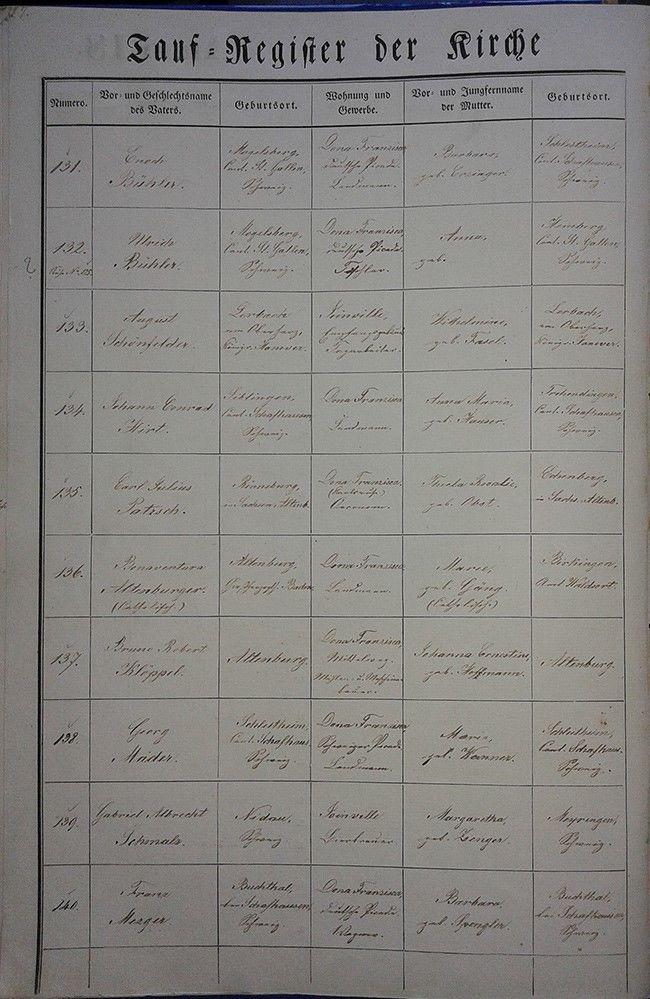 Tauf-Register der Kirche
Numero.
Vor- und Geschlechtsname
des Vaters.
Geburtsort.
Wohnung und
Gewerbe.
Vor- und Jungfernname
der Mutter.
Geburtsort.
131.
Enoch
Bühler.
Mogelsberg,
Cant. St. Gallen,
Schweiz.
Dona Francisca
deutsche Picade
Landmann.
Barbara,
geb.
Schleitheim,
Cant. Schafhausen,
Schweiz.
132.
Ulrich
Bühler.
Mogelsberg,
Cant. St. Gallen,
Schweiz.
Dona Francisca,
deutsche Picade
Tischler.
Anna,
geb.
Hemberg,
Cant. St. Gallen,
Schweiz.
133.
August
Schönfelder.
Lerbach
am Oberharz,
Königr. Hanover.
Joinville,
Wilhelmine,
geb. Fasel.
Lerbach,
am Oberharz,
Königr. Hanover.
134.
Johann Conrad
Hirt.
Siblingen,
Cant. Schafhausen,
Schweiz.
Dona Francisca
Landmann.
Anna Maria,
geb. Hauser.
Cant. Schafhausen,
Schweiz.
135.
Carl Julius
Patzsch.
Ronneburg,
in Sachsen, Altenb.
Dona Francisca.
Thecla Rosalie,
geb. Obst.
in Sachs. Altenb.
136.
Bonaventura
Altenburger.
(Catholisch.)
Altenburg,
Dona Francisca
Landmann.
Marie,
geb. Gäng.
(Catholisch.)
Amt Waldshut.
137.
Bruno Robert
Klöppel.
Altenburg.
Dona Francisca
Mittelweg.
Johanna Ernestine,
geb. Hoffmann.
Altenburg.
138.
Georg
Mäder.
Schleitheim,
Cant. Schafhaus.
Schweiz.
Dona Francisca
Schweizer Picade
Landmann.
Maria,
geb. Wanner.
Schleitheim,
Cant. Schafhaus.
Schweiz.
139.
Gabriel Albrecht
Schmalz.
Nidau,
Schweiz
Joinville
Bierbrauer
Margaretha,
geb. Zenger.
Meyringen,
Schweiz.
140.
Franz
Mezger.
Buchthal,
bei Schafhausen,
Schweiz.
Dona Francisca,
deutsche Picade
Wagner.
Barbara,
geb. Spengler.
Buchthal,
bei Schafhausen,
Schweiz.